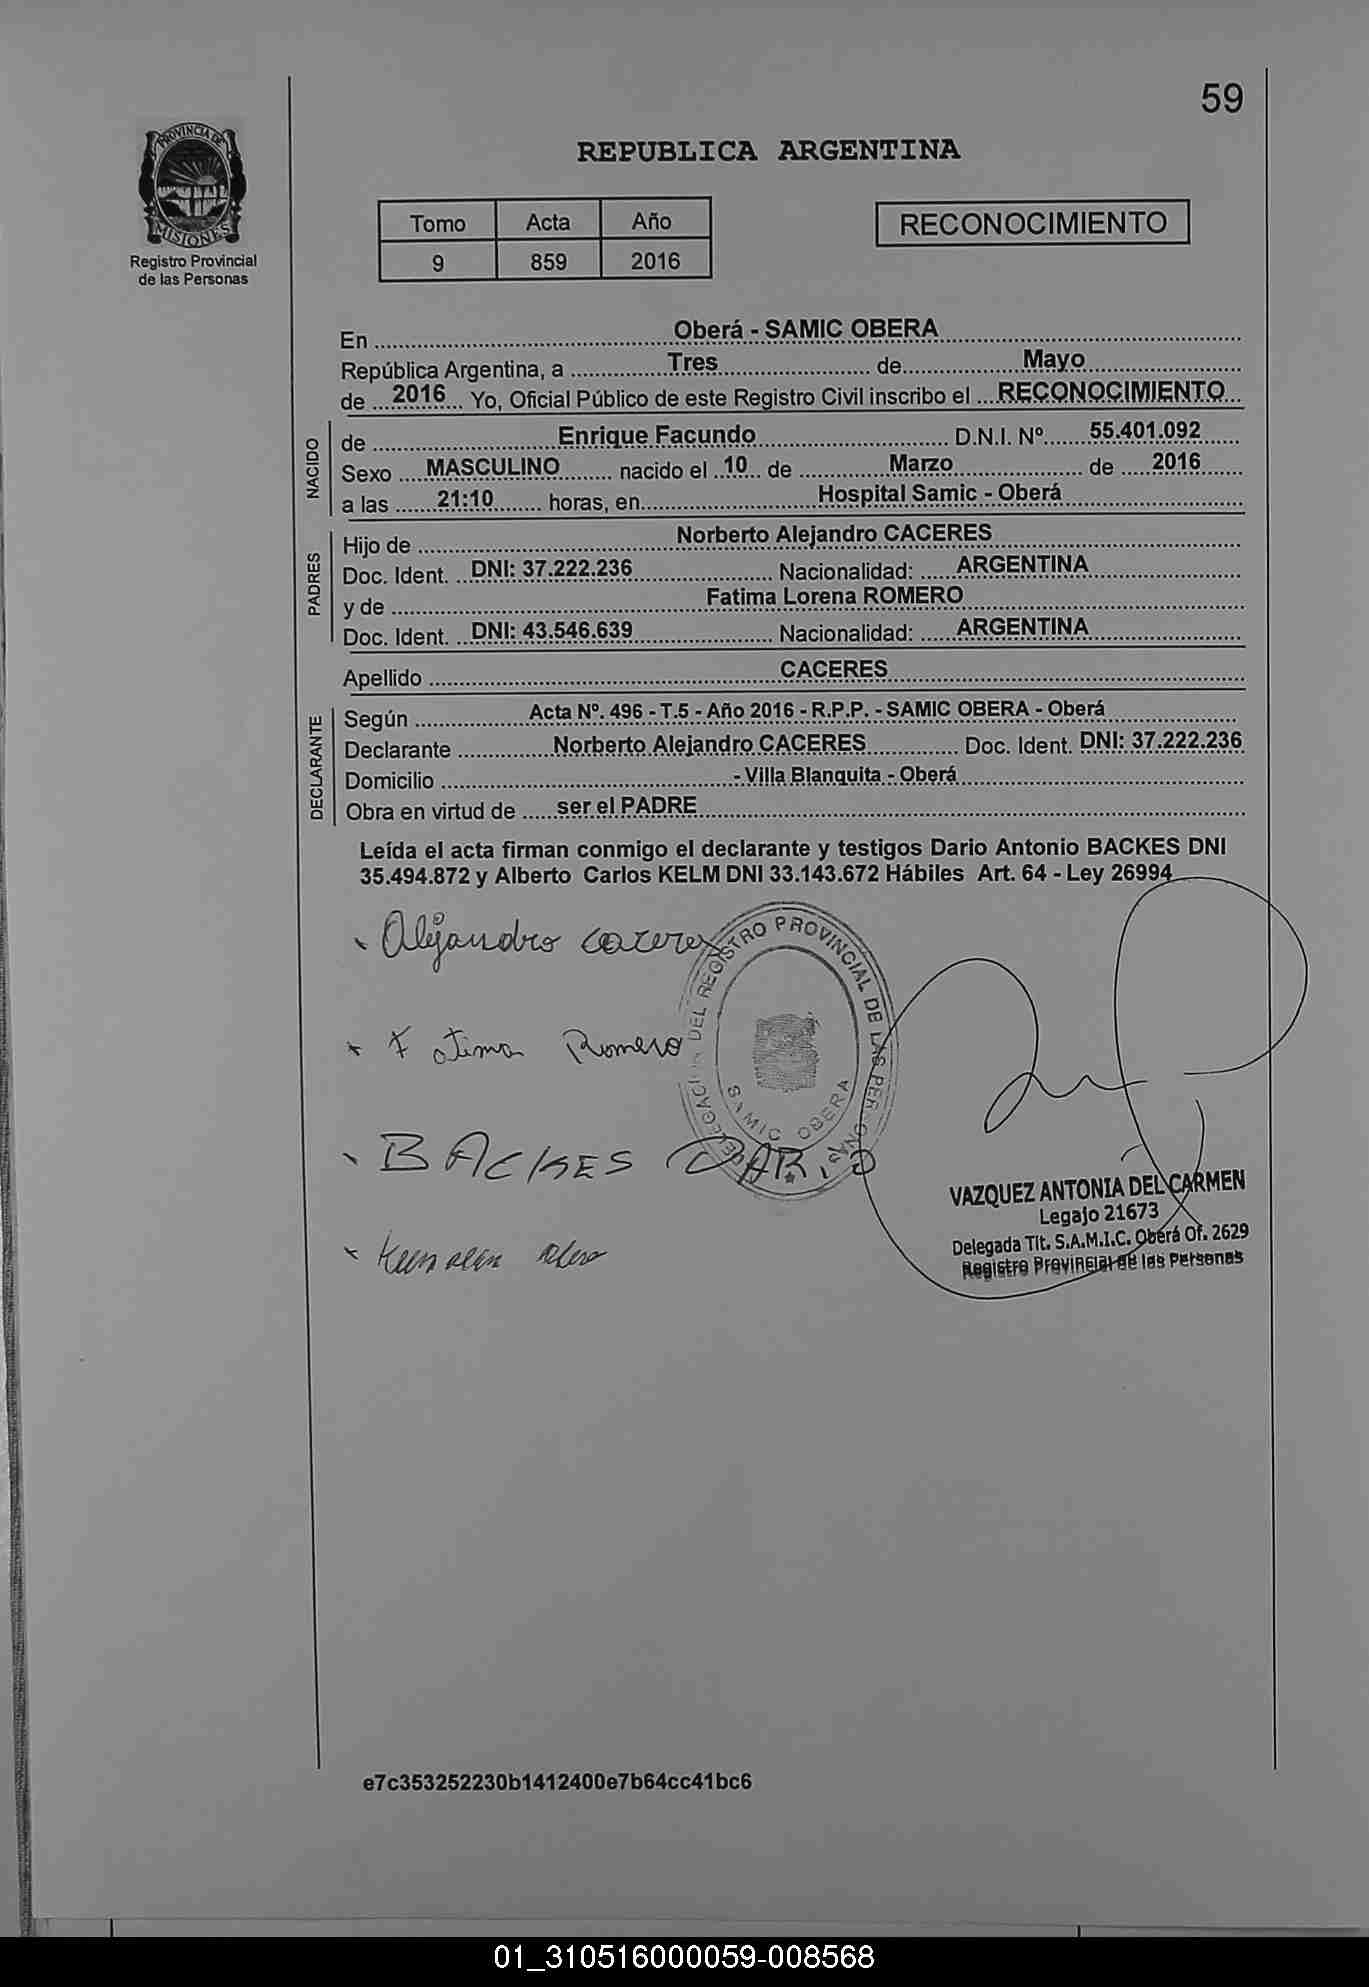 59
PROVINCIA DE
MISIONES
Registro Provincial
de las Personas
REPUBLICA ARGENTINA
Tomo Acta Año
9 859 2016
RECONOCIMIENTO
En Oberá - SAMIC OBERA
República Argentina, a Tres de Mayo
de 2016 Yo, Oficial Público de este Registro Civil inscribo el RECONOCIMIENTO
NACIDO
de Enrique Facundo D.N.I. Nº 55.401.092
Sexo MASCULINO nacido el 10 de Marzo de 2016
a las 21:10 horas, en Hospital Samic - Oberá
PADRES
Hijo de Norberto Alejandro CACERES
Doc. Ident. DNI: 37.222.236 Nacionalidad: ARGENTINA
y de Fatima Lorena ROMERO
Doc. Ident. DNI: 43.546.639 Nacionalidad: ARGENTINA
Apellido CACERES
DECLARANTE
Según Acta Nº. 496 - T.5 - Año 2016 - R.P.P. - SAMIC OBERA - Oberá
Declarante Norberto Alejandro CACERES Doc. Ident. DNI: 37.222.236
Domicilio - Villa Blanquita - Oberá
Obra en virtud de ser el PADRE
Leída el acta firman conmigo el declarante y testigos Dario Antonio BACKES DNI
35.494.872 y Alberto Carlos KELM DNI 33.143.672 Hábiles Art. 64 - Ley 26994
Alejandro caceres
Fatima Romero
BACKES DARIO
DELEGACION DEL REGISTRO PROVINCIAL DE LAS PERSONAS
SAMIC OBERA
VAZQUEZ ANTONIA DEL CARMEN
Legajo 21673
Delegada Tit. S.A.M.I.C. Oberá Of. 2629
Registro Provincial de las Personas
e7c353252230b1412400e7b64cc41bc6
01_310516000059-008568